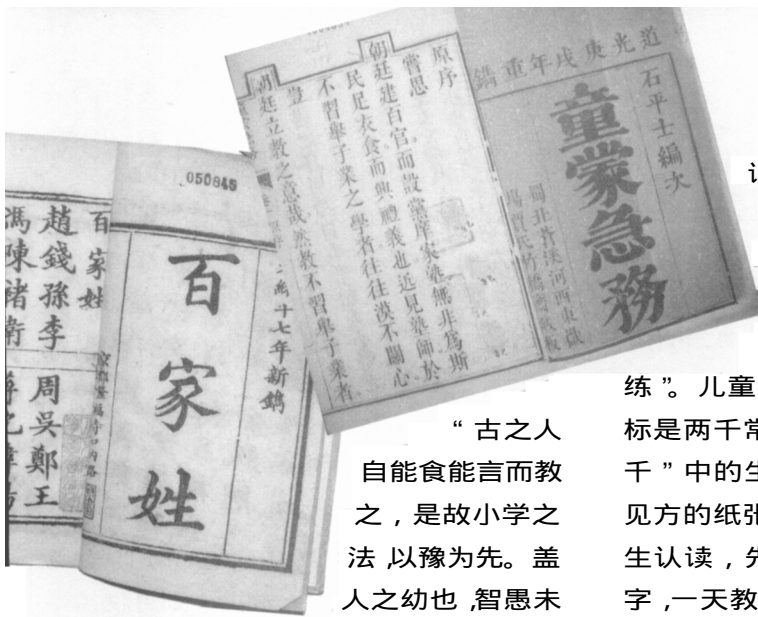 道光庚戌年重鐫
石平士編次
童蒙急務
蜀北蒼溪河西東嶽
原序
嘗思
朝廷建百官而設黨庠家塾無非爲斯
民足衣食而興禮義也近見塾師於
不習舉子業之學者往往漠不關心
豈
朝廷立教之意哉然教不習舉子業者
050845
百家姓
十七年新鐫
百家姓
趙錢孫李
周吳鄭王
馮陳褚衛
“古之人
自能食能言而教
之，是故小学之
法，以豫为先。盖
人之幼也，智愚未
练”。儿童
标是两千常
千”中的生
见方的纸张
生认读，先
字，一天教